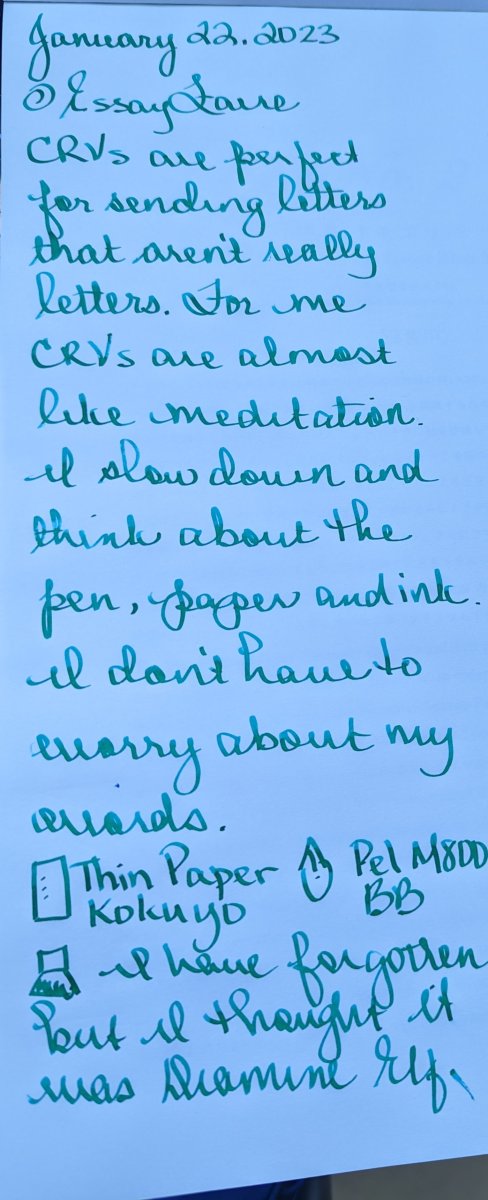 January 22.2023
@EssayLaure
CRVs are perfect
for sending letters
that aren't really
letters. For me
CRVs are almost
like meditation.
I slow down and
think about the
pen, paper and ink.
I don't have to
worry about my
words.
Thin Paper
Kokuyo
Pel M800
BB
I have forgotten
but I thought it
was Diamine Elf.